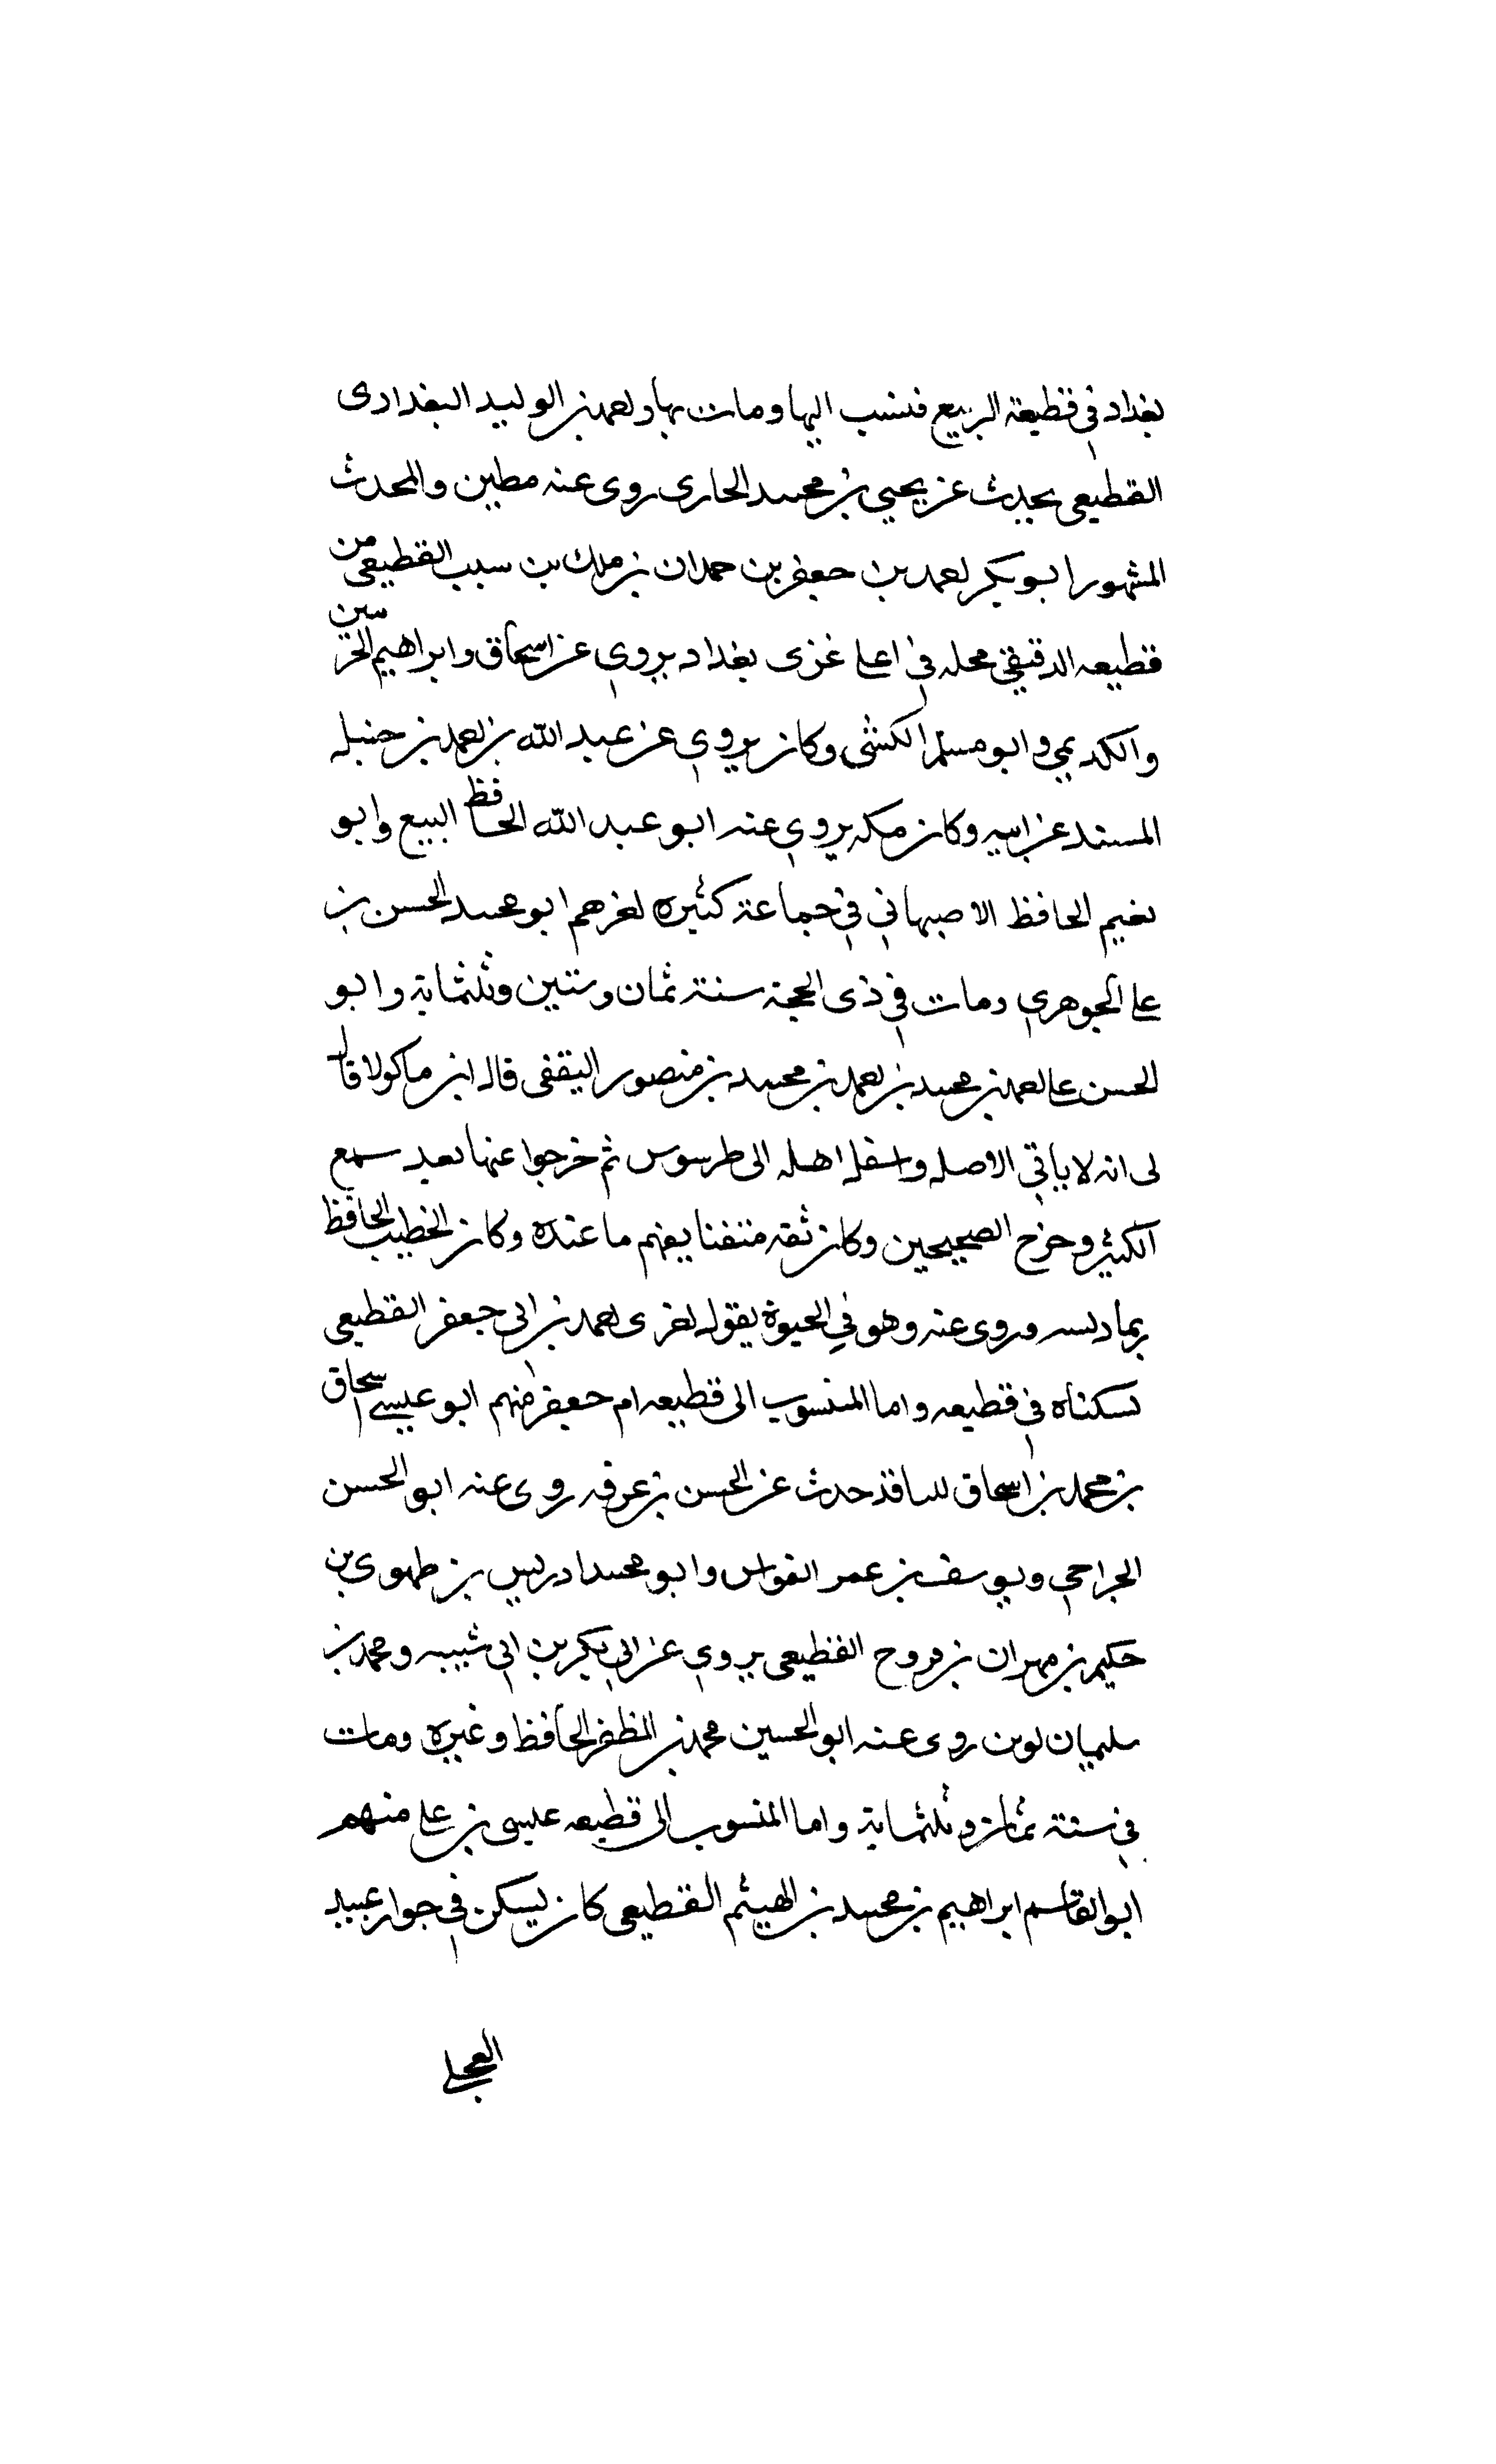 بغداد في قطيعة الربيع فنسب اليها ومات بها واحمد بن الوليد البغدادى
القطيعى يحدث عن يحيي بن محمد الجارى روى عنه مطين والمحدث
المشهور ابو بكر احمد بن جعفر بن حمدان بن ملك بن سبب القطيعي من
قطيعه الدقيقي محله في اعلى غزى بغداد يروي عن اسحاق وابراهيم الحربيين
والكديمي وابو مسلم الكشى وكان يروي عن عبد الله بن احمد بن حنبل
المسند عن ابيه وكان مكه يروي عنه ابو عبد الله الحافظ البيع وابو
نعيم الحافظ الاصبهاني في جماعة كثيره اخرهم ابو محمد الحسن بن
على الجوهري ومات في ذى الحجة سنة ثمان وستين وثلثماية وابو
الحسن على احمد بن محمد بن احمد بن محمد بن منصور اليقفى قال ابن ماكولا قال
لى انه لا ياتي الاصل واسفل اهله الى طرسوس ثم خرجوا عنها بعد سمع
الكثير وخرج الصحيحين وكان ثقه متفنا يفهم ما عنده وكان الخطيب الحافظ
ربما دلسه وروى عنه وهو في الحيوة يقول اخبرنى احمد بن ابى جعفر القطيعى
لسكناه في قطيعه واما المنسوب الى قطيعه ام جعفر منهم ابو عيسى اسحاق
بن محمد بن اسحاق الناقد حدث عن الحسن بن عرفه روى عنه ابو الحسن
الجراحي ويوسف بن عمر القواس وابو محمد ادريس بن طهوى بن
حكيم بن مهران بن فروخ القطيعى يروي عن ابي بكر بن ابي شيبه ومحمد بن
سليمان لوين روى عنه ابو الحسين محمد بن المظفر الحافظ وغيره ومات
في سنة ثمان وثلثماية واما المنسوب الى قطيعه عيسى بن على منهم
ابو القاسم ابراهيم بن محمد بن الهيثم القطيعى كان يسكن في جوار عبيد
العجلي